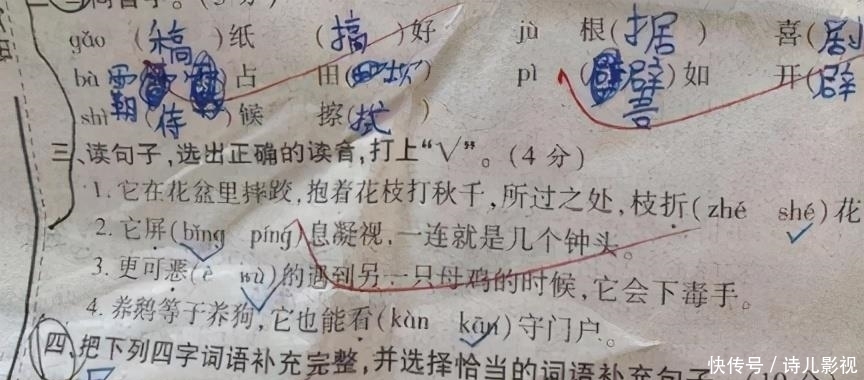 gǎo (稿)纸 (搞)好 jù 根(据) 喜(剧
bà 霸占 田(坝) pì (譬)如 开(辟
shì (侍)候 擦(拭)
三、读句子,选出正确的读音,打上“√”。(4分)
1. 它在花盆里摔跤,抱着花枝打秋千,所过之处,枝折(zhé shé)花
2. 它屏(bǐng píng)息凝视,一连就是几个钟头。
3. 更可恶(è wù)的遇到另一只母鸡的时候,它会下毒手。
4. 养鹅等于养狗,它也能看(kàn kān)守门户。
四、把下列四字词语补充完整,并选择恰当的词语补充句子
快传号/诗儿影视